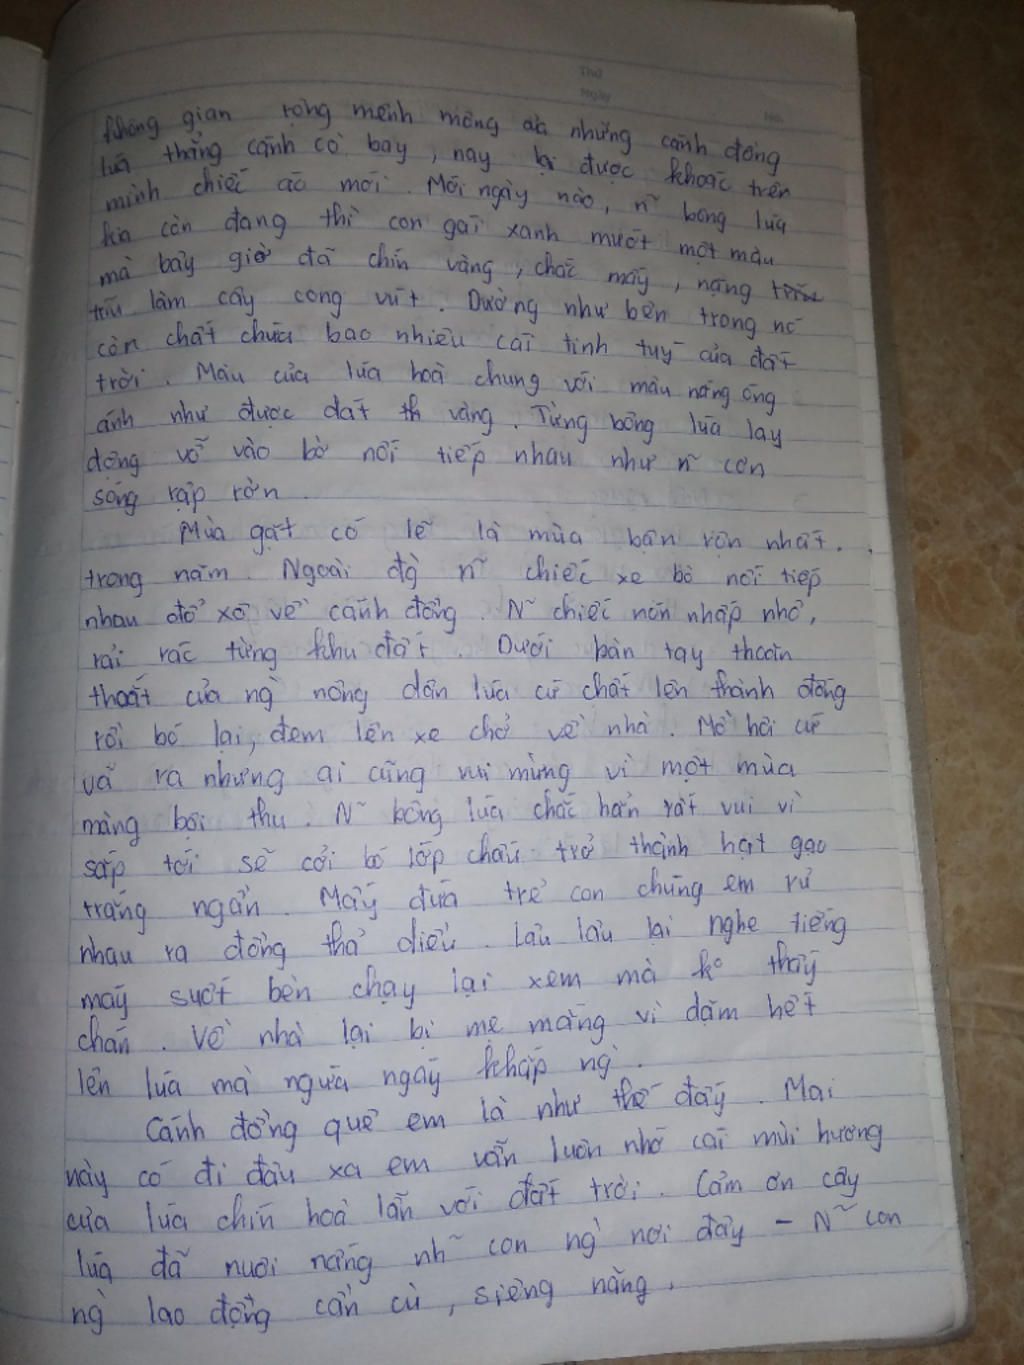 Thứ
Ngày
No.
không gian rộng mênh mông của những cánh đồng
lúa thẳng cánh cò bay, nay lại được khoác trên
mình chiếc áo mới. Mới ngày nào, n~ bông lúa
kia còn đang thì con gái xanh mướt một màu
mà bây giờ đã chín vàng, chắc mẩy, nặng
trĩu làm cây cong vút. Dường như bên trong nó
còn chất chứa bao nhiêu cái tinh tuý của đất
trời. Màu của lúa hoà chung với màu nắng óng
ánh như được dát th vàng. Từng bông lúa lay
động vỗ vào bờ nối tiếp nhau như n~ cơn
sóng rập rờn.
Mùa gặt có lẽ là mùa bận rộn nhất
trong năm. Ngoài đg` n~ chiếc xe bò nối tiếp
nhau đổ xô về cánh đồng. N~ chiếc nón nhấp nhô,
rải rác từng khu đất. Dưới bàn tay thoăn
thoắt của ng` nông dân lúa cứ chất lên thành đống
rồi bó lại, đem lên xe chở về nhà. Mồ hôi cứ
vã ra nhưng ai cũng vui mừng vì một mùa
màng bội thu. N~ bông lúa chắc hẳn rất vui vì
sắp tới sẽ cởi bỏ lớp chấu trở thành hạt gạo
trắng ngần. Mấy đứa trẻ con chúng em rủ
nhau ra đồng thả diều. Lâu lâu lại nghe tiếng
máy suốt bèn chạy lại xem mà k° thấy
chán. Về nhà lại bị mẹ mắng vì dặm hết
lên lúa mà ngứa ngáy khắp ng`.
Cánh đồng quê em là như thế đấy. Mai
này có đi đâu xa em vẫn luôn nhớ cái mùi hương
của lúa chín hoà lẫn với đất trời. Cảm ơn cây
lúa đã nuôi nấng nh~ con ng` nơi đây – N~ con
ng` lao động cần cù, siêng năng.